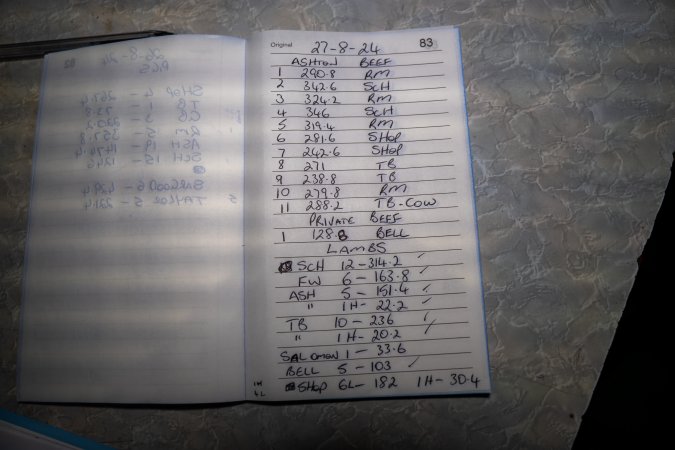 Original
83
27-8-24
ASHTON BEEF
1 290.8 RM
2 342.6 SCH
3 324.2 RM
4 346 SCH
5 319.4 RM
6 281.6 SHOP
7 242.6 SHOP
8 271 TB
9 238.8 TB
10 279.8 RM
11 288.2 TB-COW
PRIVATE BEEF
1 128.8 BELL
LAMBS
SCH 12-314.2 ✓
FW 6-163.8 ✓
ASH 5-151.4 ✓
" 1H-22.2 ✓
TB 10-236 ✓
" 1H-20.2 ✓
SALOMON 1-33.6
BELL 5-103 ✓
SHOP 6L-182 1H-30.4
1H
4L